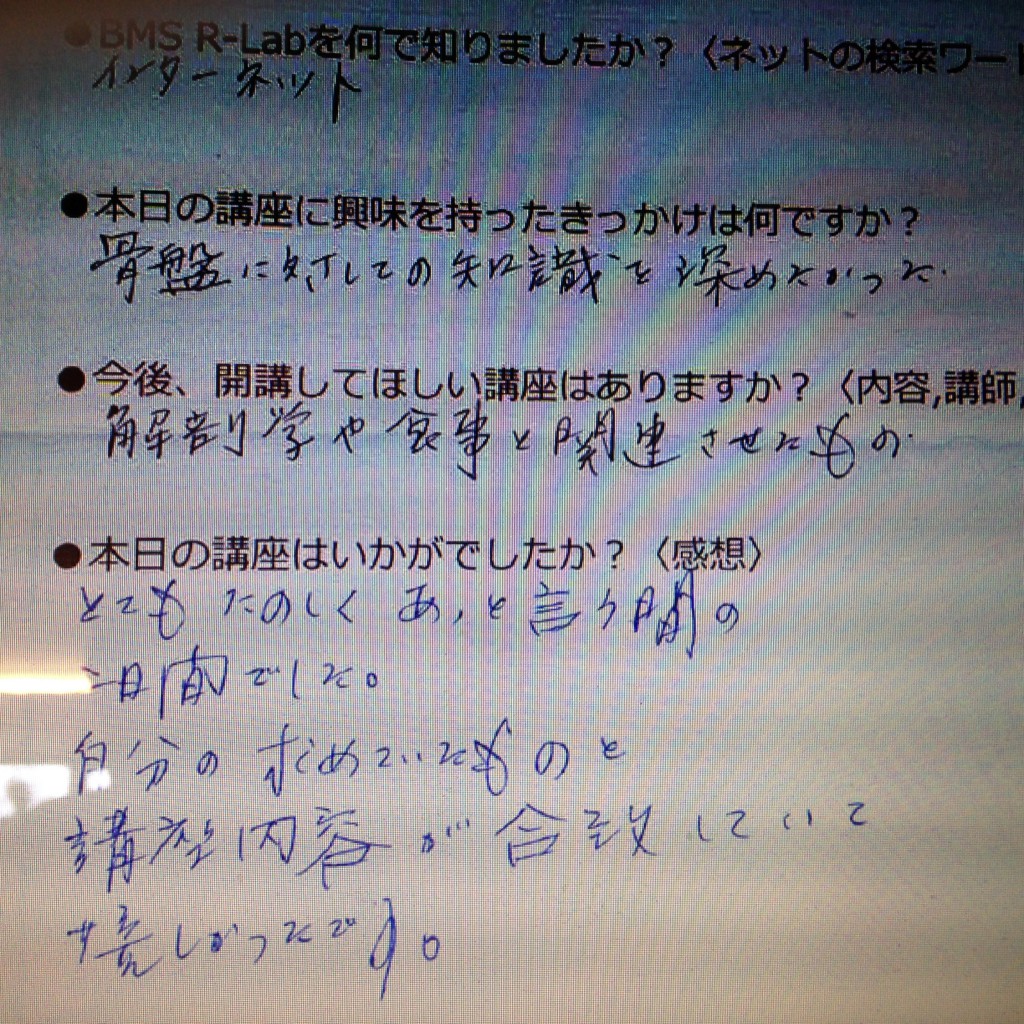 ●BMS R-Labを何で知りましたか？〈ネットの検索ワード
インターネット
●本日の講座に興味を持ったきっかけは何ですか？
骨盤に対しての知識を深めたかった.
●今後、開講してほしい講座はありますか？〈内容,講師,
解剖学や食事と関連させたもの.
●本日の講座はいかがでしたか？〈感想〉
とても たのしく あっと言う間の
一日間でした。
自分の求めていたものと
講座内容が合致していて
嬉しかったです。